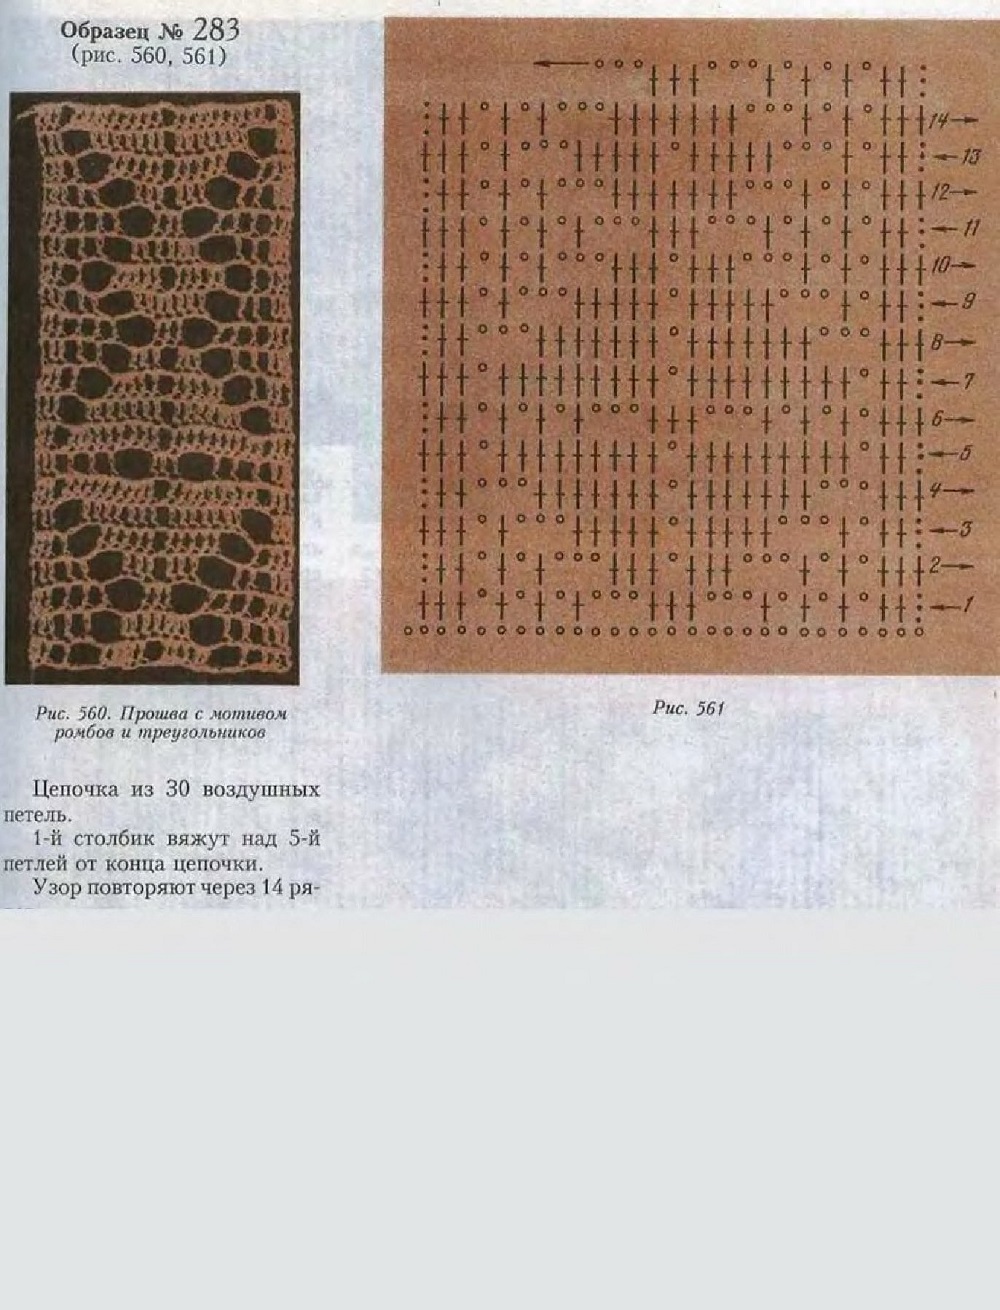 Образец № 283
(рис. 560, 561)
14
13
12
11
10
9
8
7
6
5
4
3
2
1
Рис. 560. Прошва с мотивом
ромбов и треугольников
Рис. 561
Цепочка из 30 воздушных
петель.
1-й столбик вяжут над 5-й
петлей от конца цепочки.
Узор повторяют через 14 ря-